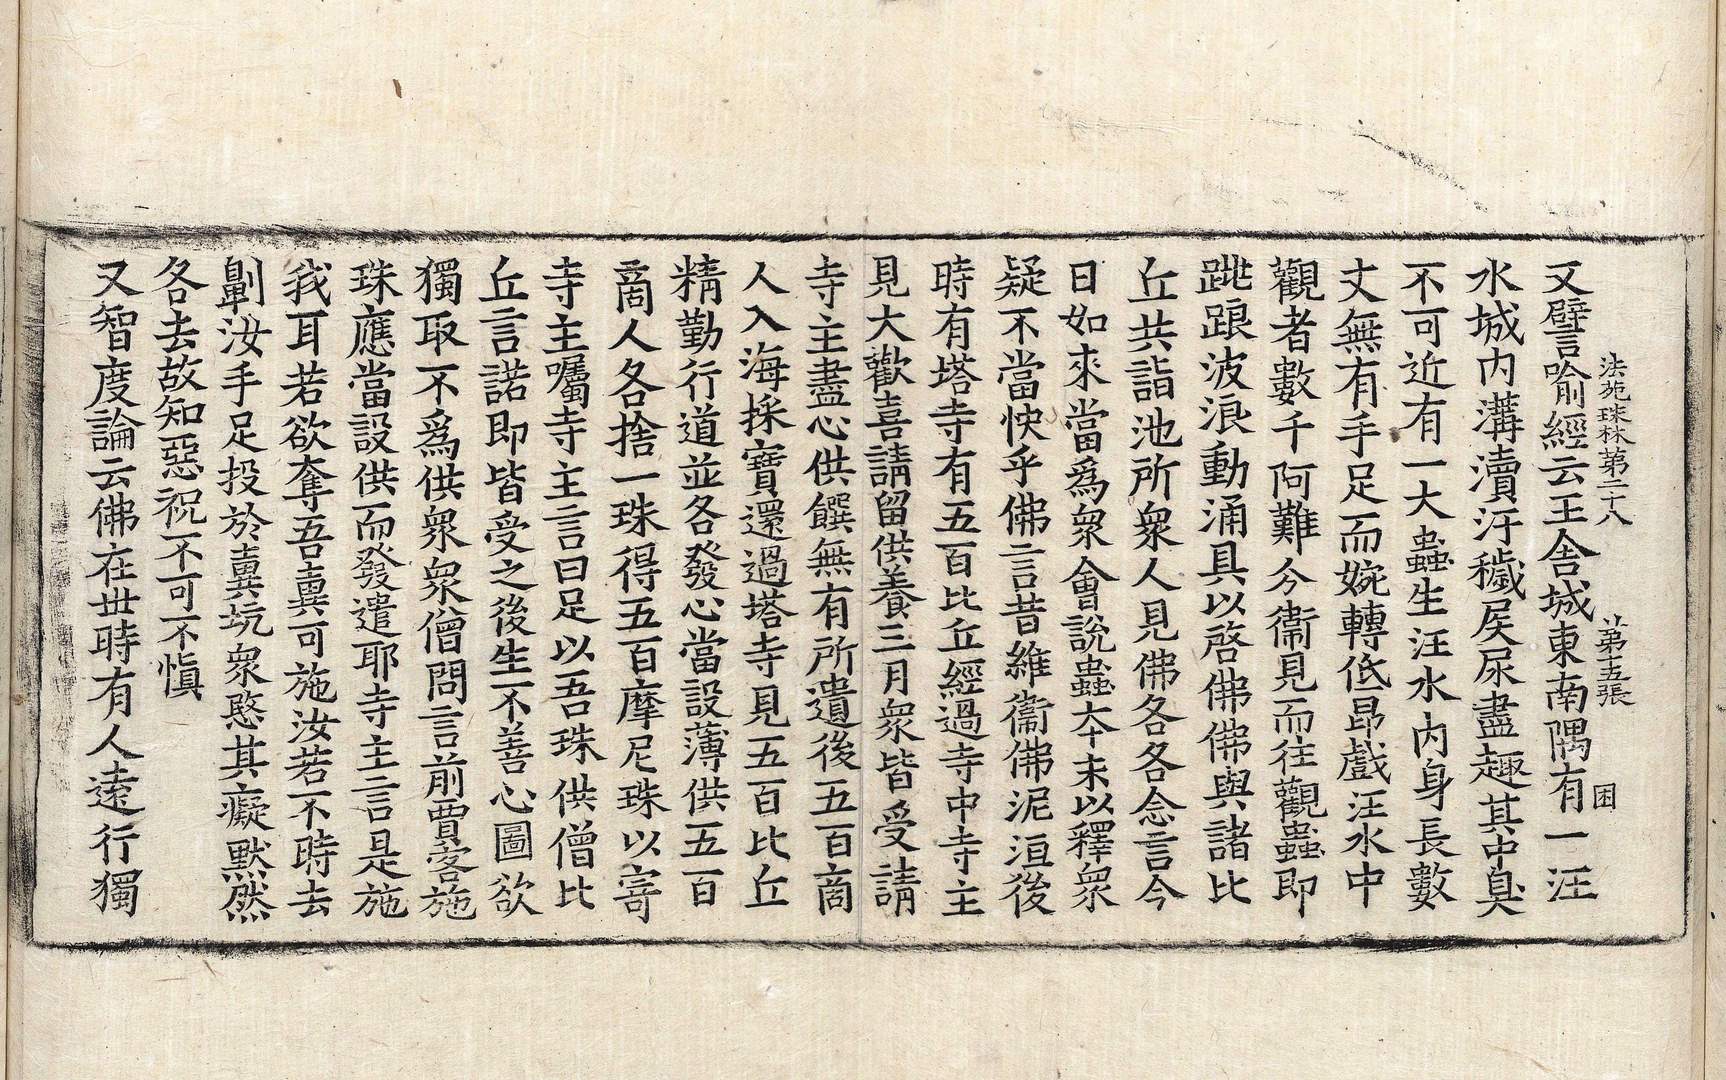 法苑珠林第二十八　第十五張　困
又譬喻經云王舍城東南隅有一汪
水城內溝瀆汙穢屎尿盡趣其中臭
不可近有一大蟲生汪水內身長數
丈無有手足而婉轉低昂戲汪水中
觀者數千阿難分衞見而往觀蟲即
跳踉波浪動涌具以啓佛佛與諸比
丘共詣池所衆人見佛各各念言今
日如來當爲衆會說蟲夲末以釋衆
疑不當快乎佛言昔維衞佛泥洹後
時有塔寺有五百比丘經過寺中寺主
見大歡喜請留供養三月衆皆受請
寺主盡心供饌無有所遺後五百商
人入海採寶還過塔寺見五百比丘
精勤行道並各發心當設薄供五百
商人各捨一珠得五百摩尼珠以寄
寺主囑寺主言曰足以吾珠供僧比
丘言諾即皆受之後生不善心圖欲
獨取不爲供衆衆僧問言前賈客施
珠應當設供而發遣耶寺主言是施
我耳若欲奪吾糞可施汝若不時去
劓汝手足投於糞坑衆愍其癡默然
各去故知惡祝不可不愼
又智度論云佛在世時有人遠行獨